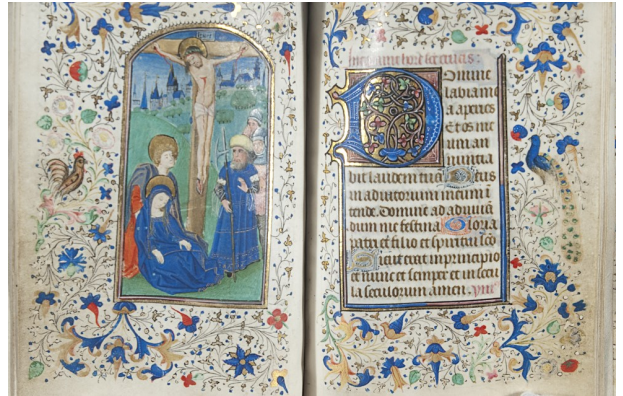 hore
Domine
labia me
a aperies
Et os me
um an
nuncia
bit laudem tuā Deus
in adiutorium meum ī
tende. Domine ad adiuuā
dum me festina Gloria
patri et filio et spiritui sc̄o
Sicut erat in principio
et nunc et semper et in secu
la seculorum amen.